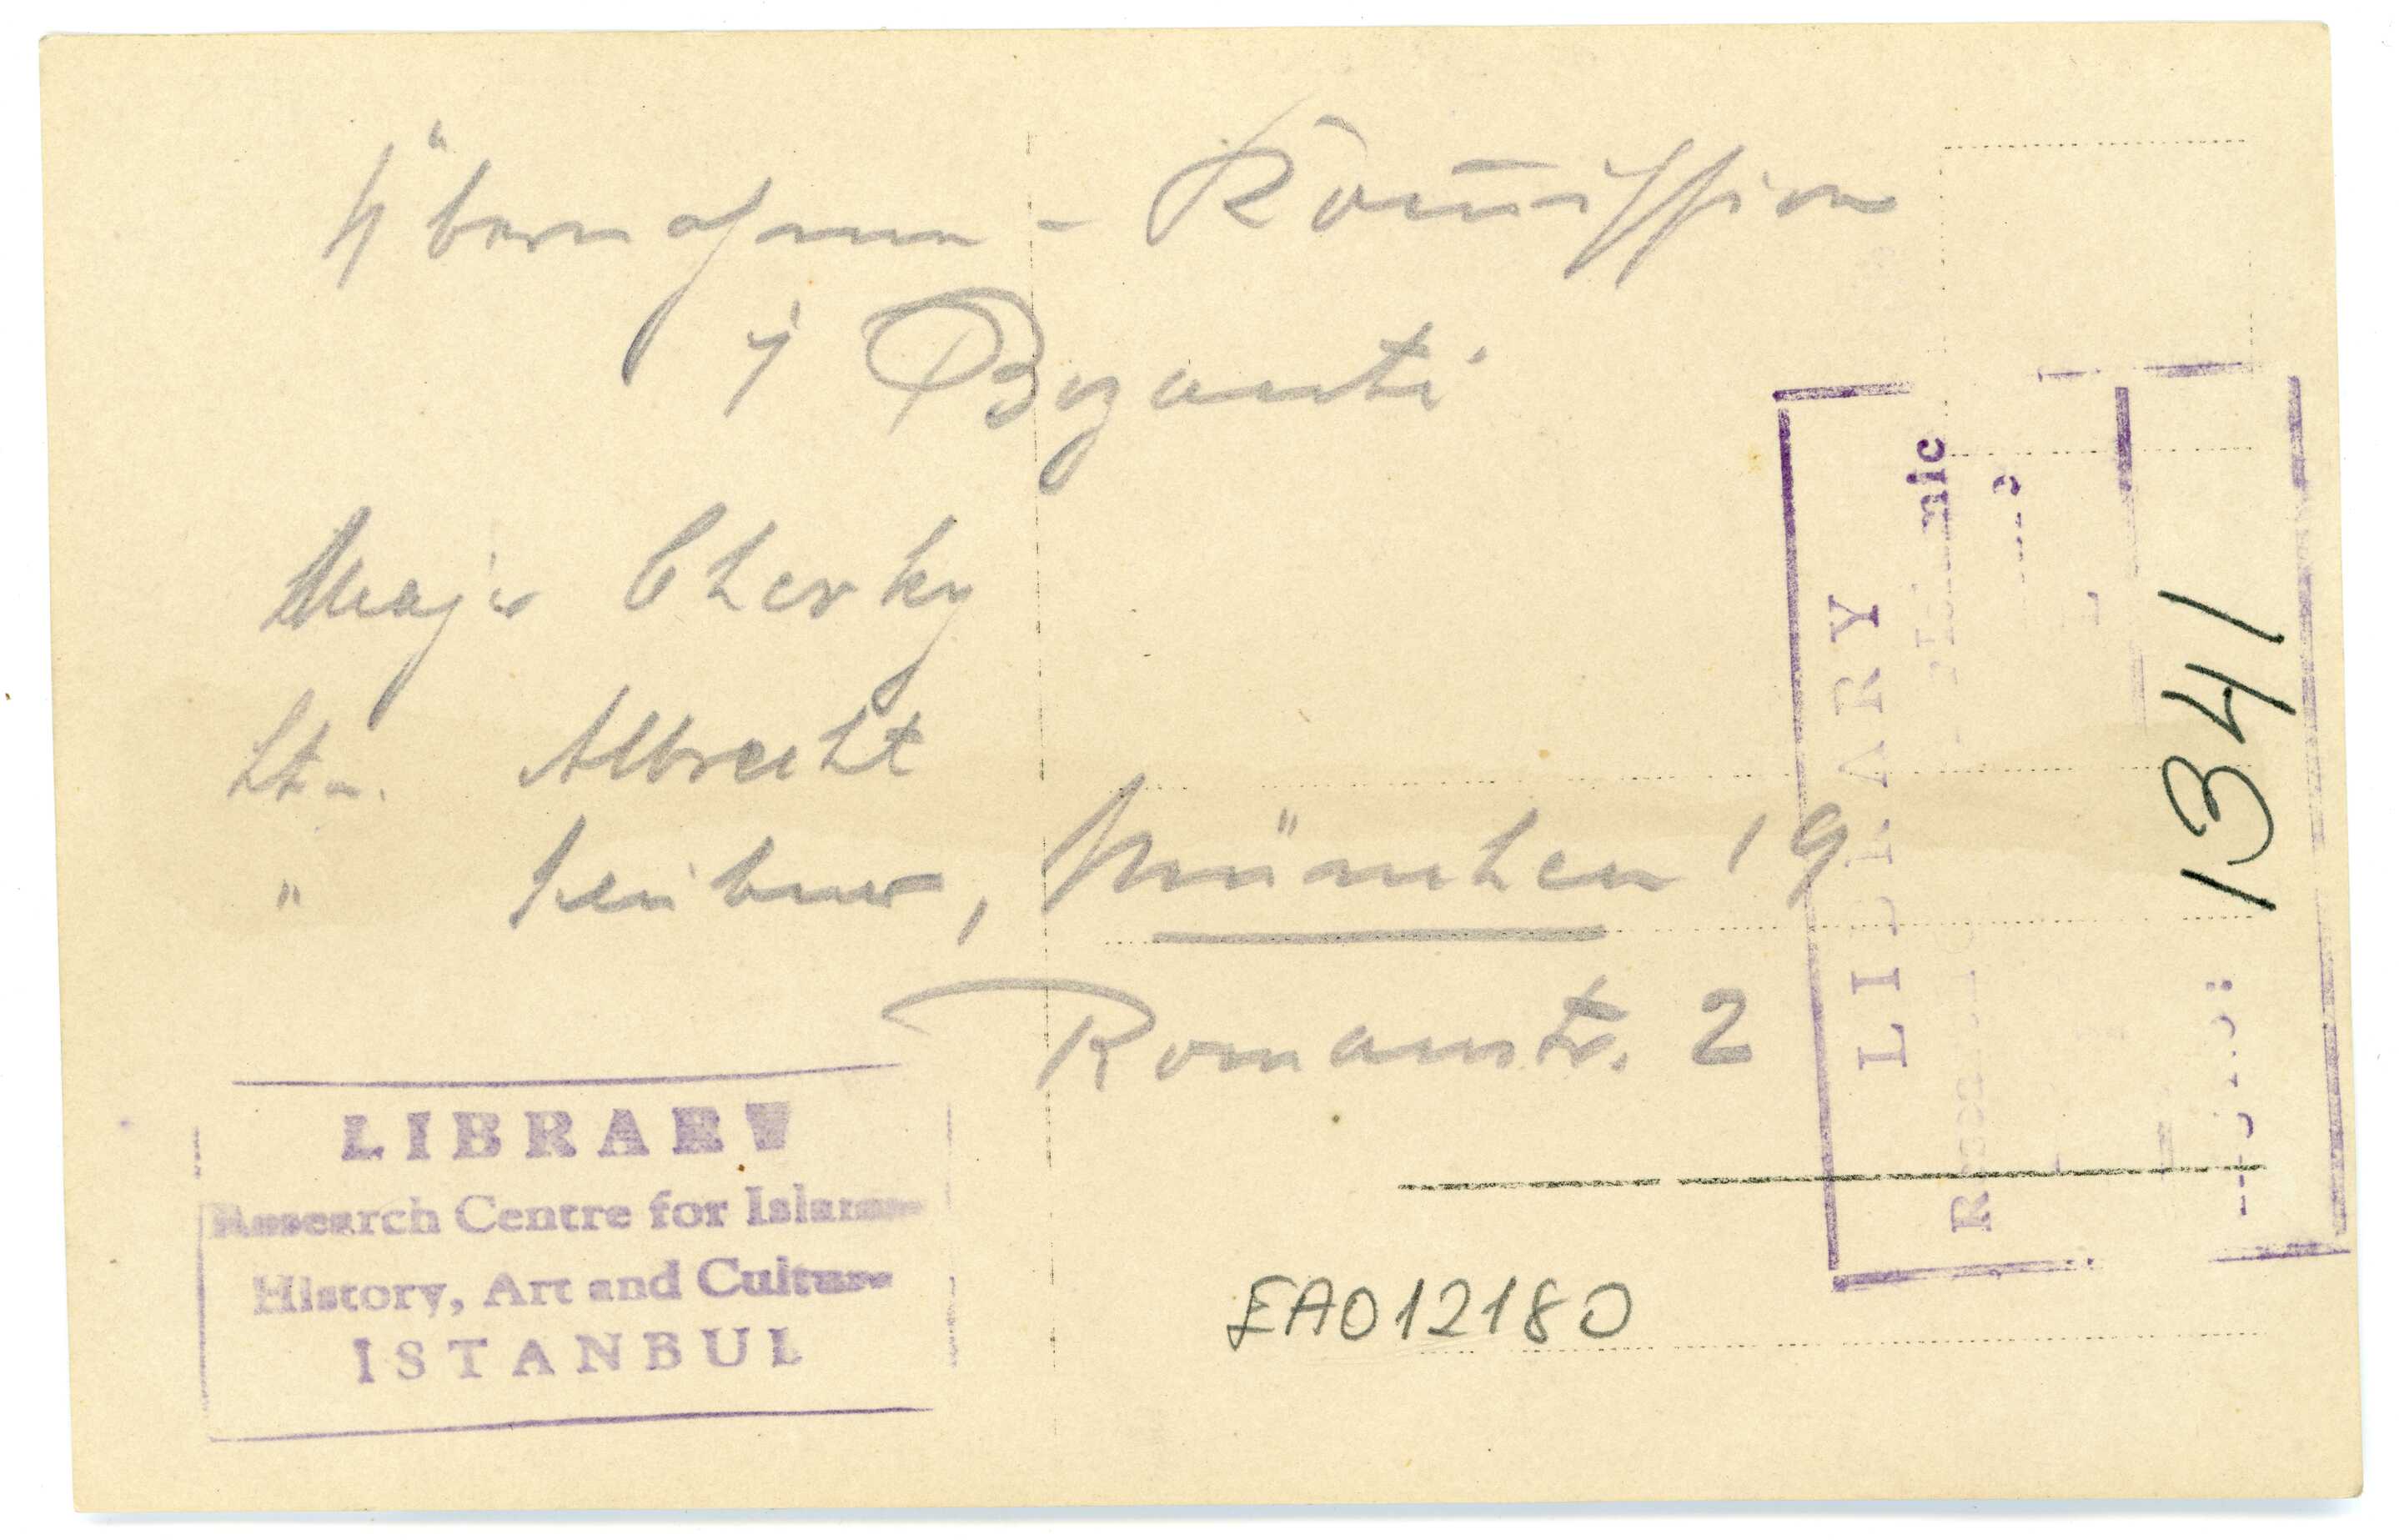 Übernahme - Kom̅ission
i Bozanti
Major
Ltn. Albrecht
" München 19
Romanstr. 2
LIBRARY
Research Centre for Islamic
History, Art and Culture
ISTANBUL
EA012180
LIBRARY
1341